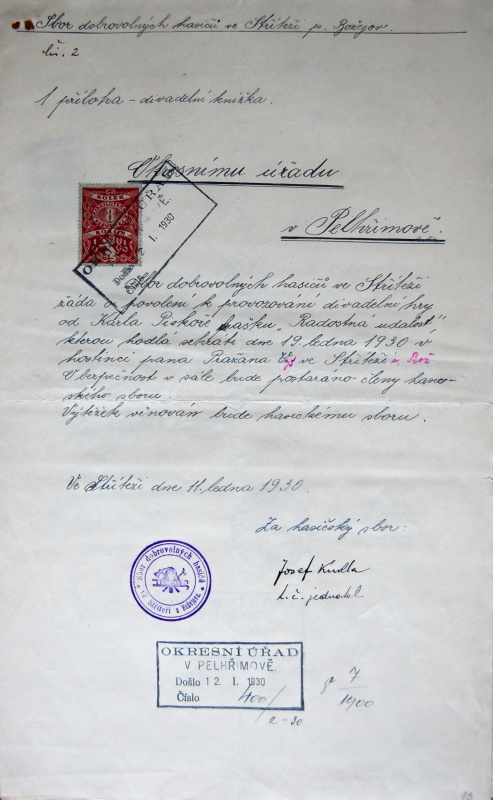 Sbor dobrovolných hasičů ve Střítěži p. Božejov.
čís. 2
1 příloha - divadelní knížka.
Okresnímu úřadu
v Pelhřimově.
KOLEK
8
OKRESNÍ ÚŘAD
Došlo 12. I. 1930
Číslo
Sbor dobrovolných hasičů ve Střítěži
žádá o povolení k provozování divadelní hry
od Karla Piskoře, frašku, "Radostná událost"
kterou hodlá sehráti dne 19. ledna 1930 v
hostinci pana Pražana ve Střítěži
O bezpečnost v sále bude postaráno členy hasič-
ského sboru.
Výtěžek věnován bude hasičskému sboru.
Ve Střítěži dne 11. ledna 1930.
Za hasičský sbor:
Josef Kudla
t. č. jednatel
Sbor dobrovolných hasičů
ve Střítěži
OKRESNÍ ÚŘAD
V PELHŘIMOVĚ.
Došlo 12. I. 1930
Číslo 400/
2-30
7
1900